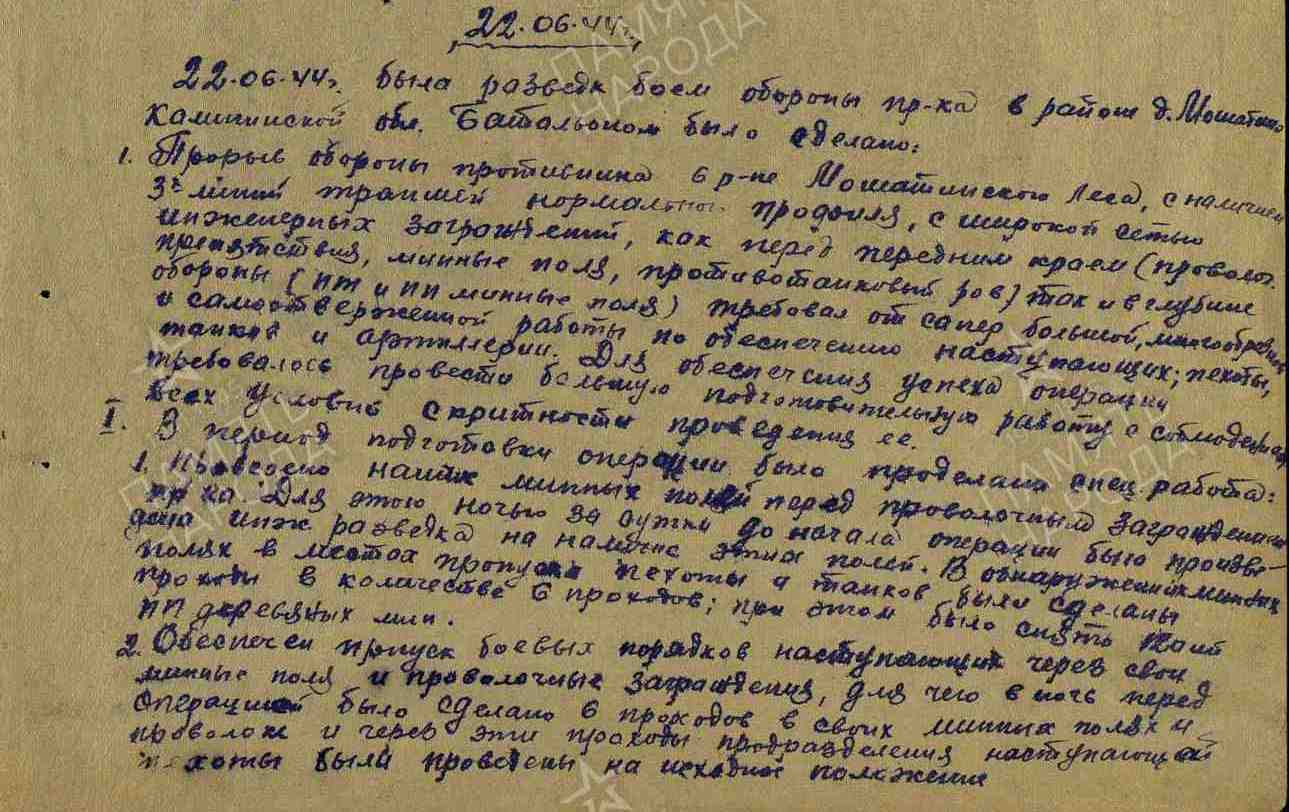 22.06.44г.
22.06.44г. была разведк боем обороны пр-ка в районе д. Мошатино
Калининской обл. Батальоном было сделано:
1. Прорыв обороны противника в р-не Мошатинского Леса, с наличием
3х линий траншей нормального профиля, с широкой сетью
инженерных заграждений, как перед передним краем (проволоч.
препятствия, минные поля, противотанковый ров) так и в глубине
обороны (ПТ и ПП минные поля) требовал от сапер большой, многообразной
и самоотверженной работы по обеспечению наступающих; пехоты,
танков и артиллерии. Для обеспечения успеха операции
требовалось провести большую подготовительную работу с соблюдением
всех условий скритности проведения ее.
I. В период подготовки операции было проделана спец. работа:
1. Проведено минных полей перед проволочным заграждением
пр-ка. Для этого ночью за сутки до начала операции было произве-
дена инж разведка на наличие этих полей. В обнаруженных минных
полях в местах пропуска пехоты и танков были сделаны
проходы в количестве 6 проходов; при этом было снято
ПП деревяных мин.
2. Обеспечен пропуск боевых порядков наступающих через свои
минные поля и проволочные заграждения, для чего в ночь перед
операцией было сделано 6 проходов в своих минных полях и
проволоке и через эти проходы подразделения наступающей
пехоты были проведены на исходное положение
ПАМЯТЬ
НАРОДА
ПАМЯТЬ
НАРОДА
ПАМЯТЬ
НАРОДА